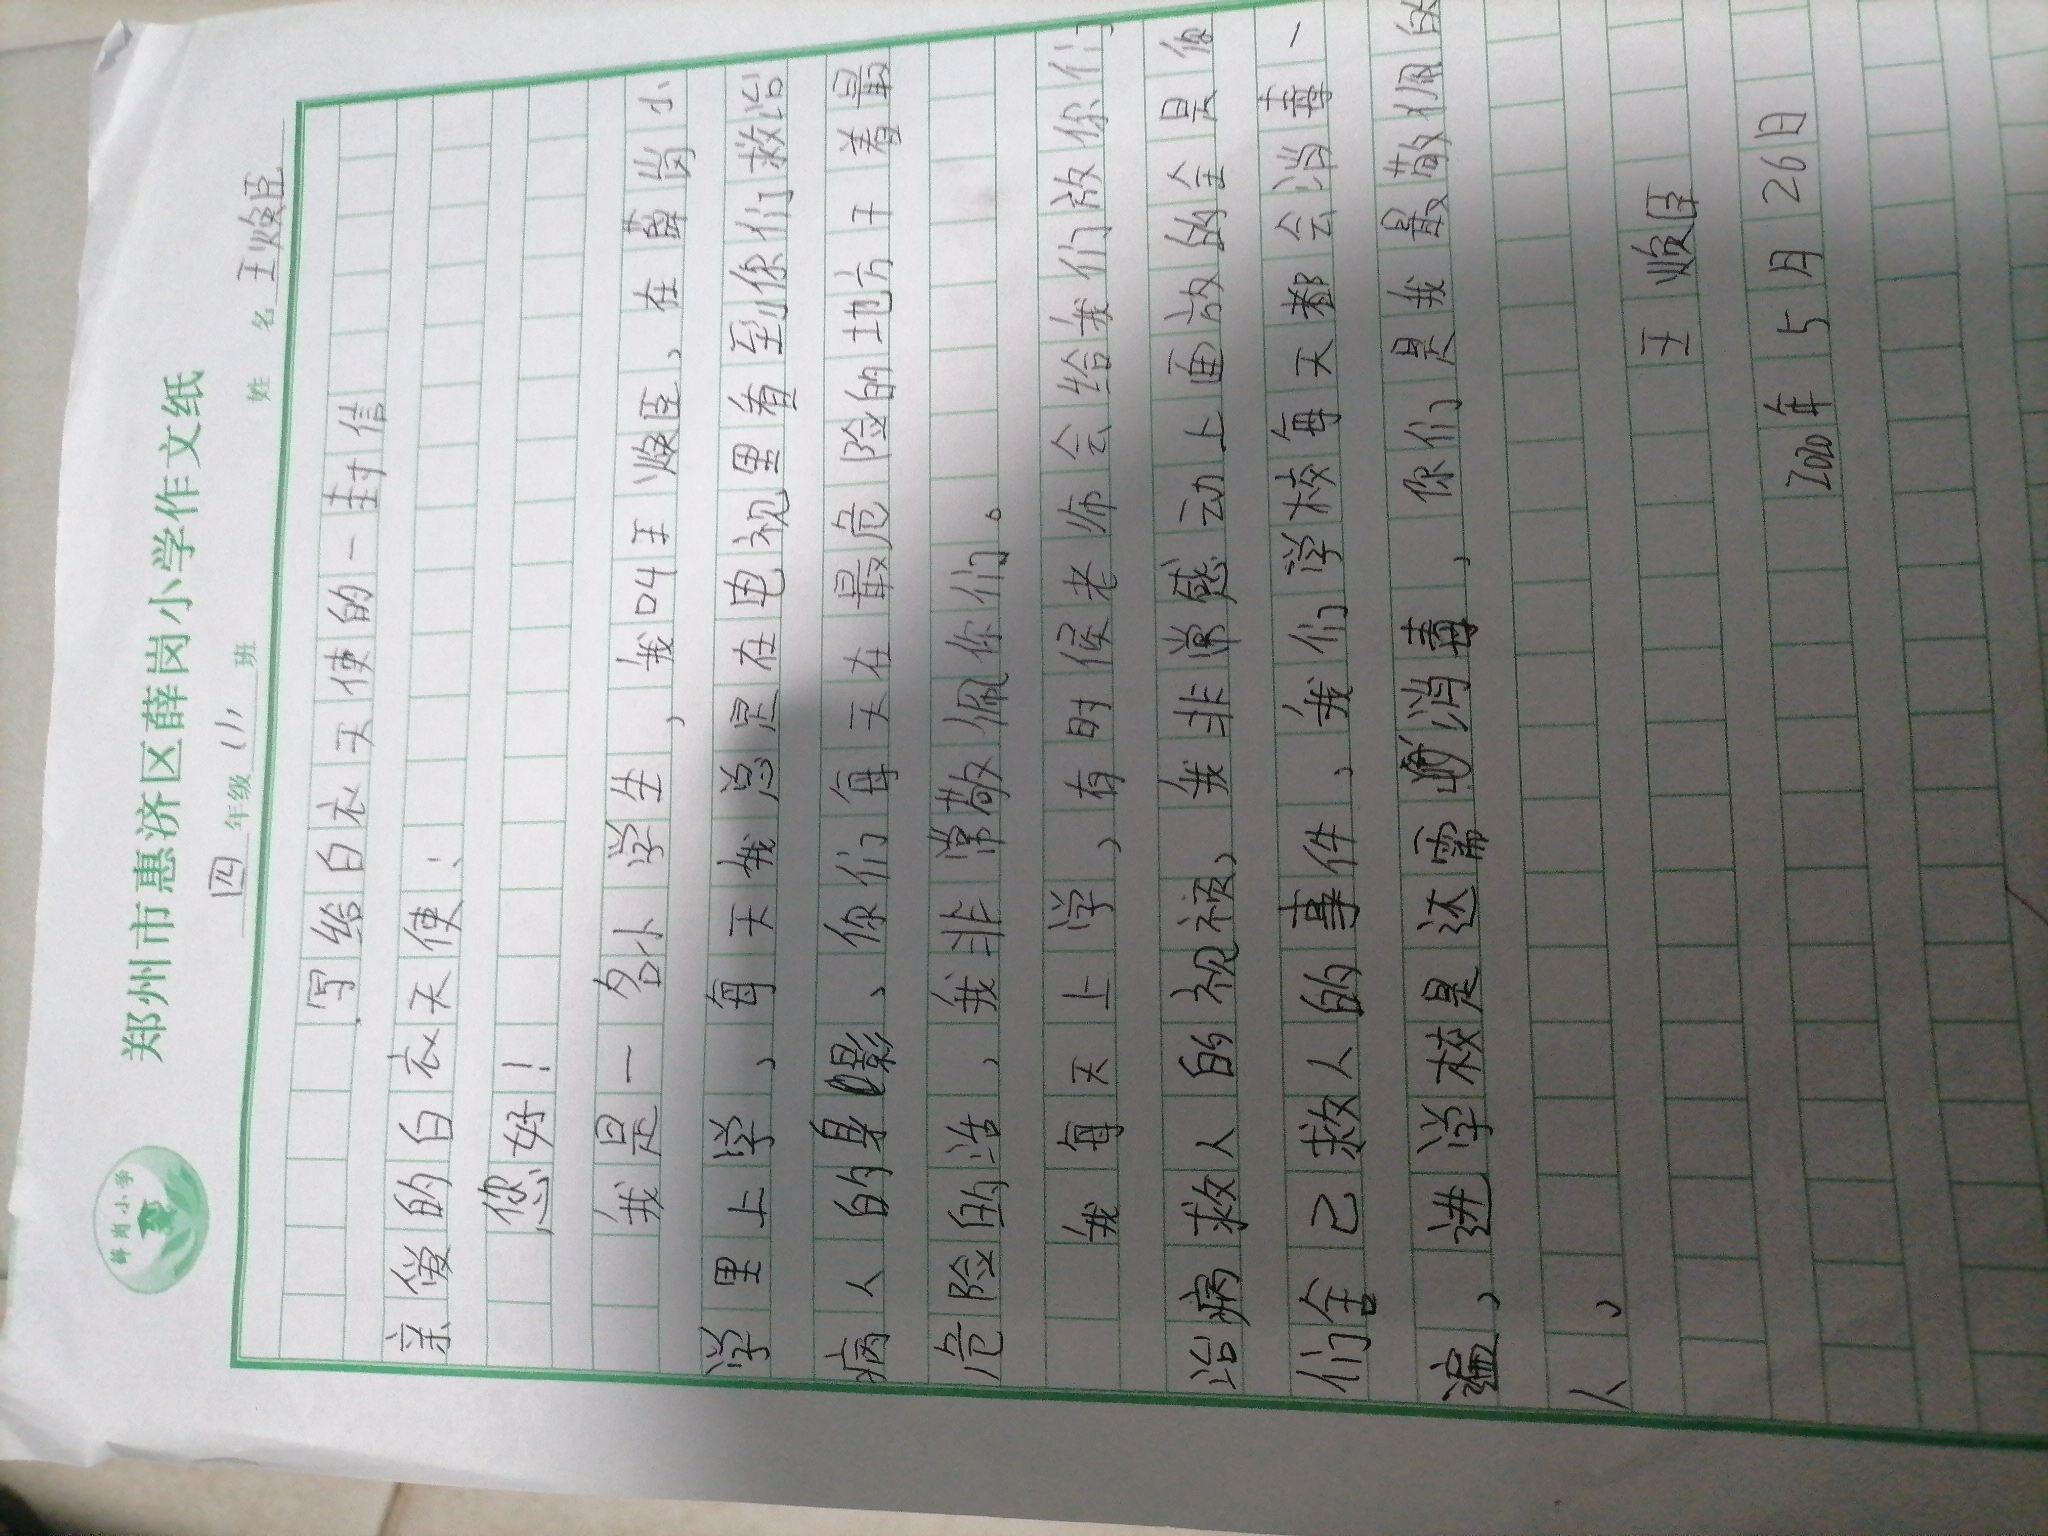 薛岗小学
郑州市惠济区薛岗小学作文纸
四年级(1)班 姓名 王焕臣
写给白衣天使的一封信
亲爱的白衣天使:
您好!
我是一名小学生,我叫王焕臣、在薛岗小
学里上学,每天我总是在电视里看到你们救治
病人的身影、你们每天在最危险的地方干着最
危险的活,我非常敬佩你们。
我每天上学,有时候老师会给我们放你们
治病救人的视频,我非常感动上面放的全是你
们舍己救人的事件、我们学校每天都会消毒一
遍、进学校是还需消毒,你们是我最敬佩的
人、
王焕臣
2020年5月26日